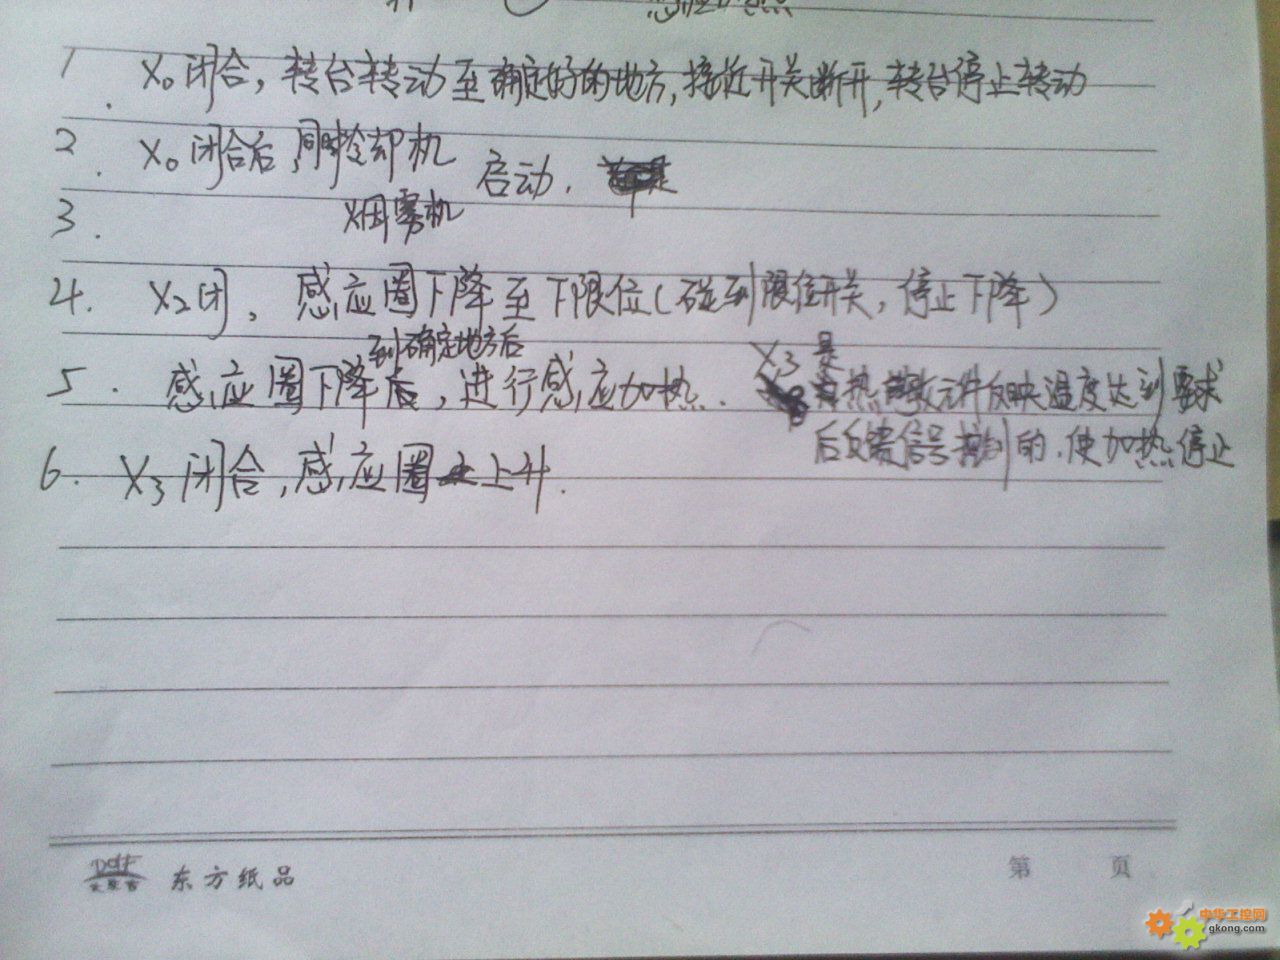 1. X₀闭合，转台转动至确定好的地方，接近开关断开，转台停止转动
2. X₀闭合后，同时冷却机 启动．
3. 烟雾机
4. X₂闭，感应圈下降至下限位（碰到限位开关，停止下降）
到确定地方后
5. 感应圈下降后，进行感应加热．
X₃是
热敏元件反映温度达到要求
后反馈信号控制的．使加热停止
6. X₃闭合，感应圈上升．
东方纸品
第 页
中华工控网
gkong.com